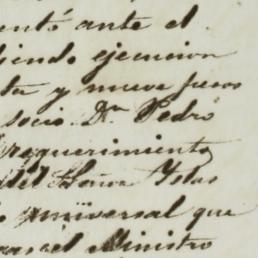 entó ante el
iendo ejecucion
ta y nueve pesos
socio Dn Pedro
requerimiento
del Señor
universal que
el Ministro